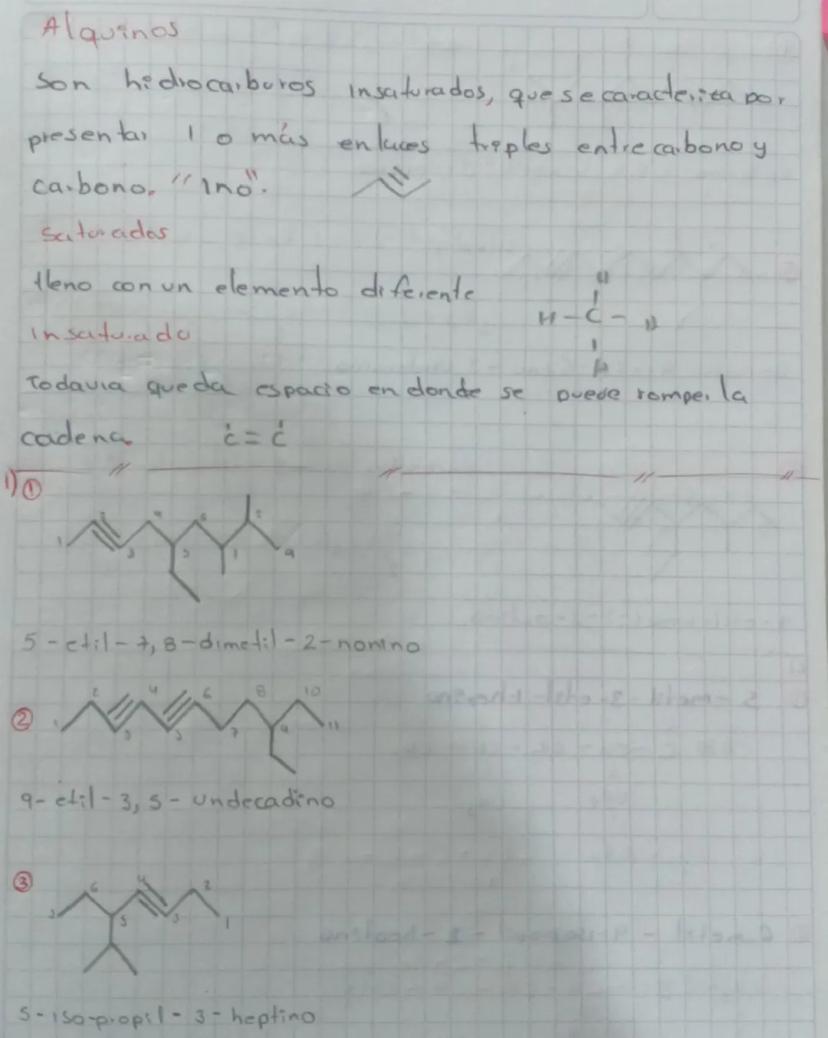 Alquinos
son hidrocarburos insaturados, que se caracteriza por
presentar 1 o más enlaces triples entre carbono y
carbono. "Ino".
saturados
lleno con un elemento diferente
H
H-C-H
H
insaturado
Todavia queda espacio en donde se puede romper la
cadena. C=C
1) ①
1 2 3 4 5 6 7 8 9
5-etil-7,8-dimetil-2-nonino
②
1 2 3 4 5 6 7 8 9 10 11
9-etil-3,5-undecadino
③
7 6 5 4 3 2 1
5-isopropil-3-heptino